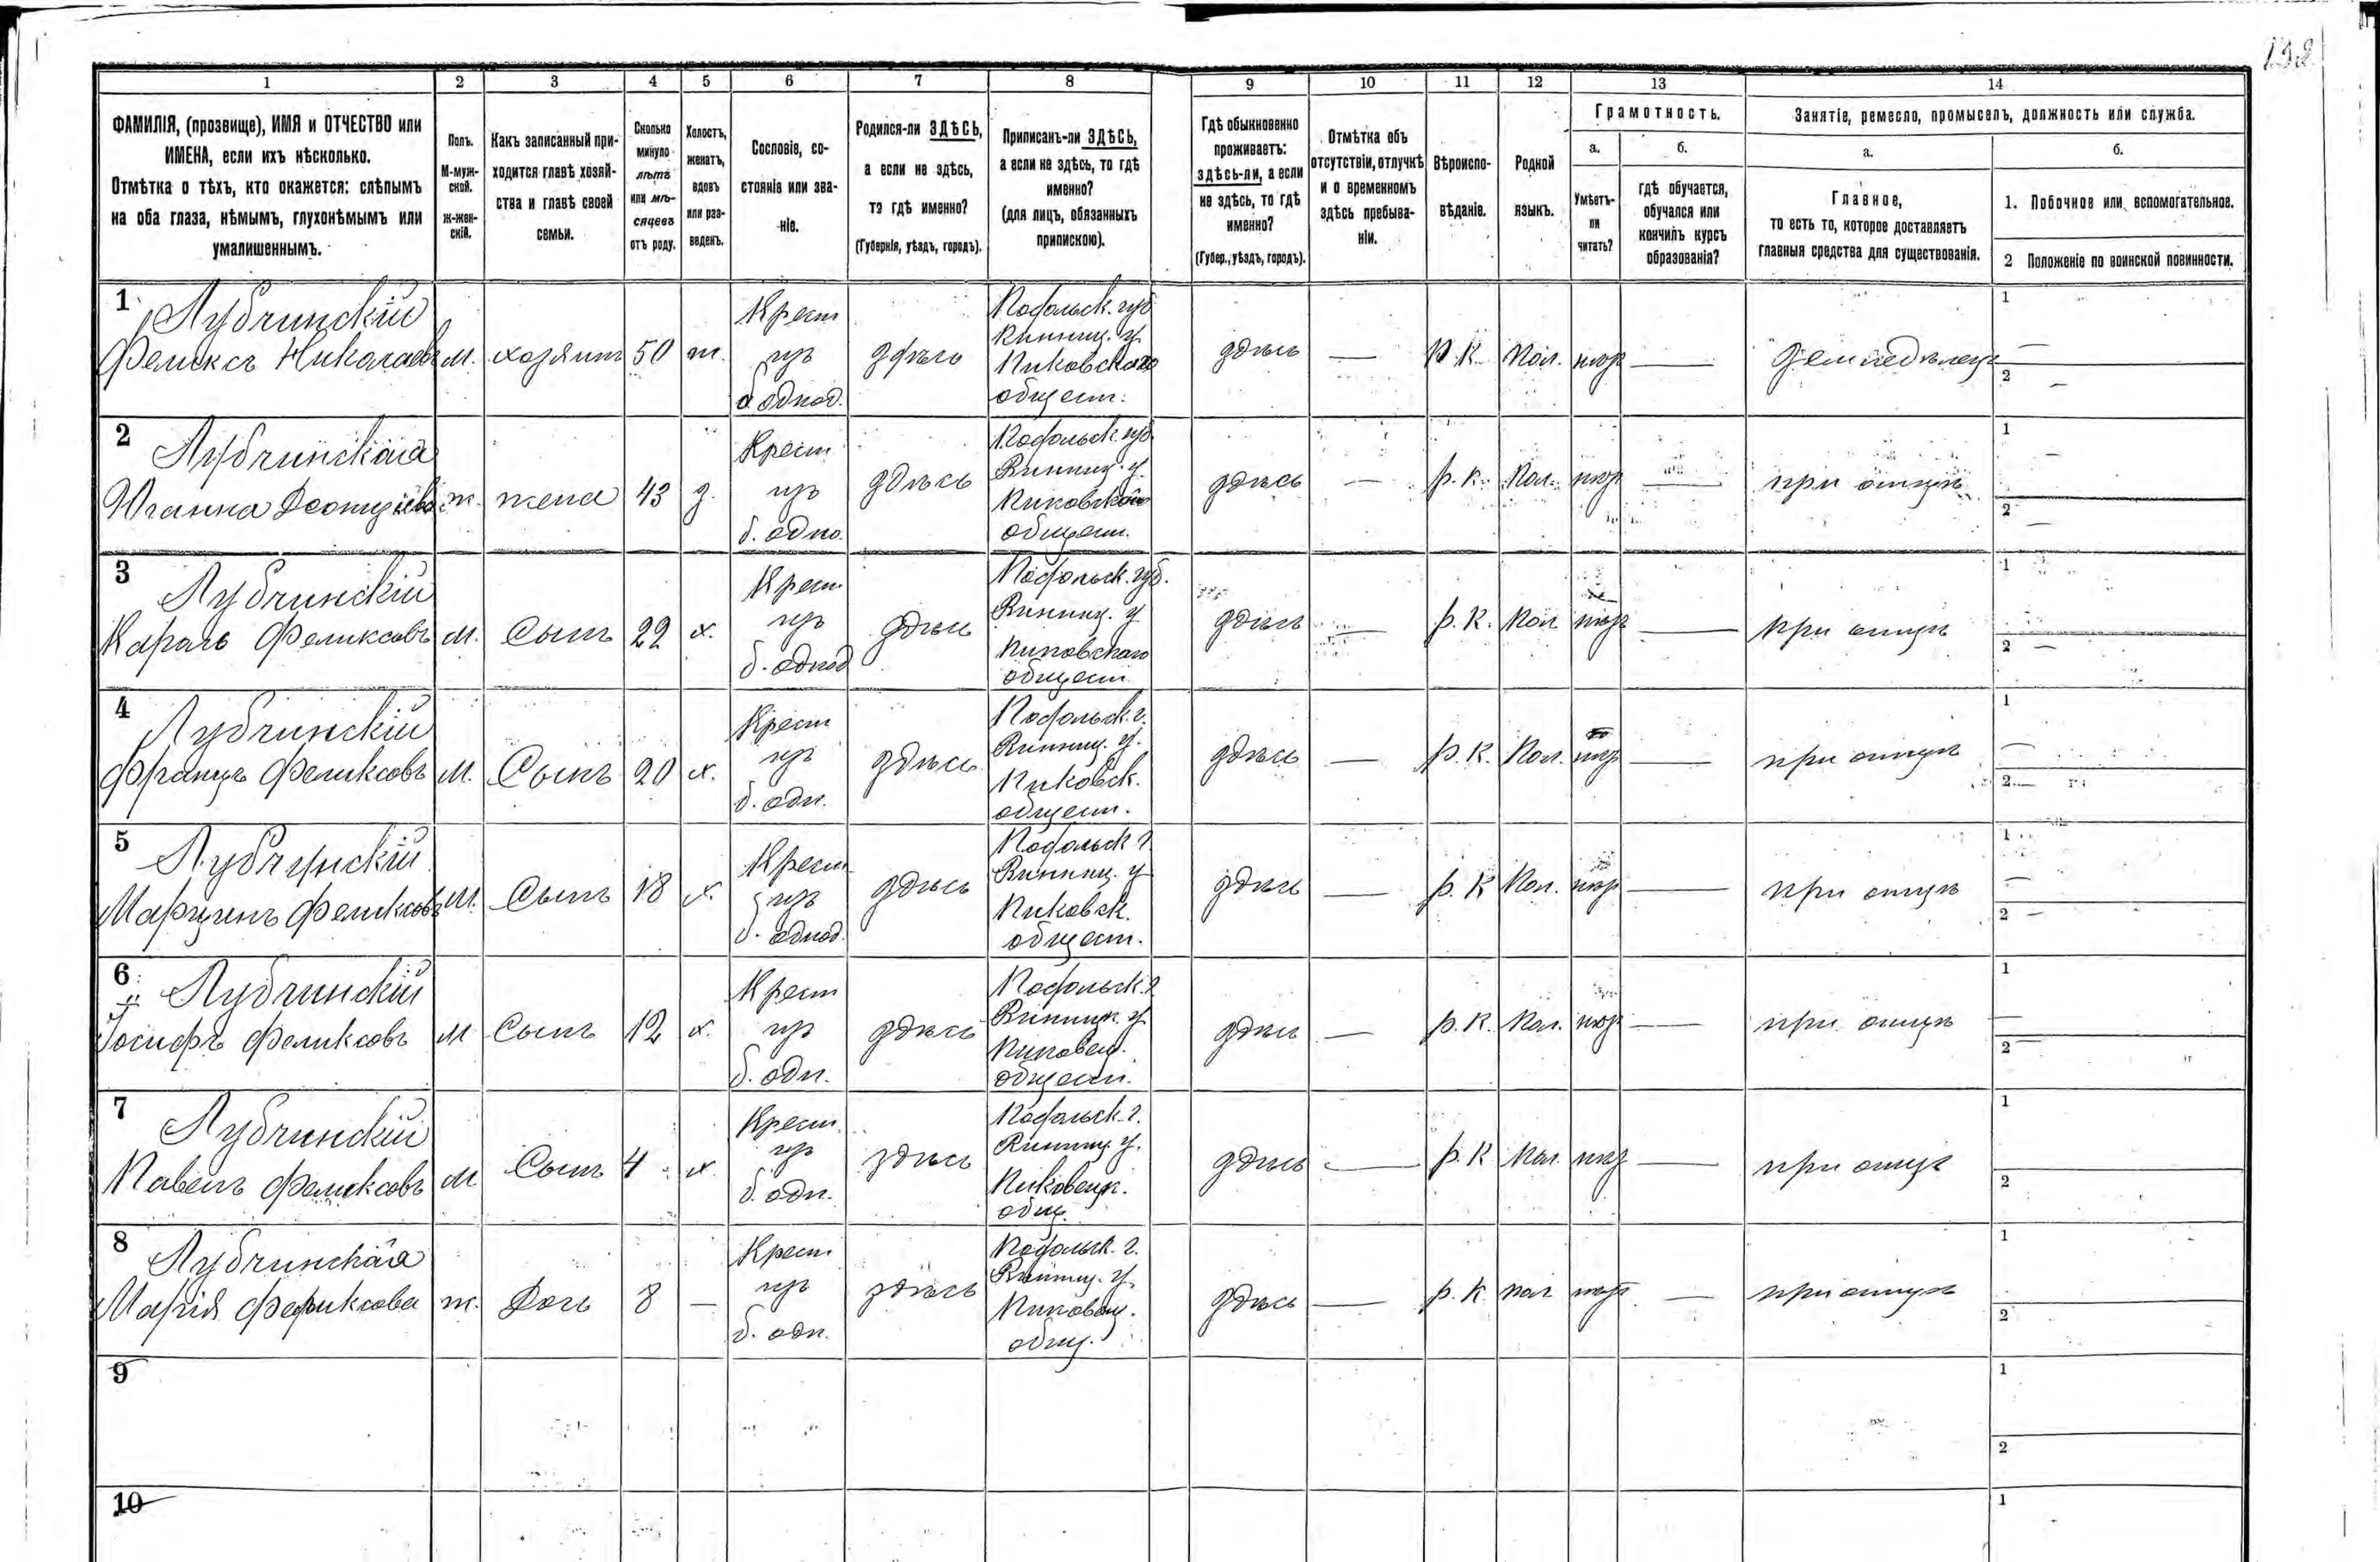 138
1
2
3
4
5
6
7
8
9
10
11
12
13
14
ФАМИЛІЯ, (прозвище), ИМЯ и ОТЧЕСТВО или
ИМЕНА, если ихъ нѣсколько.
Отмѣтка о тѣхъ, кто окажется: слѣпымъ
на оба глаза, нѣмымъ, глухонѣмымъ или
умалишеннымъ.
Полъ.
М-муж-
ской.
Ж-жен-
скій.
Какъ записанный при-
ходится главѣ хозяй-
ства и главѣ своей
семьи.
Сколько
минуло
лѣтъ
или мѣ-
сяцевъ
отъ роду.
Холостъ,
женатъ,
вдовъ
или раз-
веденъ.
Сословіе, со-
стояніе или зва-
ніе.
Родился-ли ЗДѢСЬ,
а если не здѣсь,
то гдѣ именно?
(Губернія, уѣздъ, городъ).
Приписанъ-ли ЗДѢСЬ,
а если не здѣсь, то гдѣ
именно?
(для лицъ, обязанныхъ
припискою).
Гдѣ обыкновенно
проживаетъ:
здѣсь-ли, а если
не здѣсь, то гдѣ
именно?
(Губер., уѣздъ, городъ).
Отмѣтка объ
отсутствіи, отлучкѣ
и о временномъ
здѣсь пребыва-
ніи.
Вѣроиспо-
вѣданіе.
Родной
языкъ.
Грамотность.
а.
Умѣетъ-
ли
читать?
б.
гдѣ обучается,
обучался или
кончилъ курсъ
образованія?
Занятіе, ремесло, промыселъ, должность или служба.
а.
Главное,
то есть то, которое доставляетъ
главныя средства для существованія.
б.
1. Побочное или вспомогательное.
2 Положеніе по воинской повинности.
1
Лубчинскій
Феликсъ Николаевъ
м.
хозяинъ
50
ж.
Крест
изъ
б однод.
здѣсь
Подольск. губ
Винниц. у.
Пиковскаго
общест.
здѣсь
—
р. К.
Пол.
—
земледѣлецъ
1
—
2
—
2
Лубчинская
ж.
жена
43
з.
Крест
изъ
б. одно.
здѣсь
Подольск. губ.
Винниц. у.
Пиковскаго
общест.
здѣсь
—
р. К.
Пол.
—
при отцѣ
1
—
2
—
3
Лубчинскій
Кароль Феликсовъ
м.
Сынъ
22
х.
Крест
изъ
б. однод
здѣсь
Подольск. губ.
Винниц. у
Пиковскаго
общест
здѣсь
—
р. К.
Пол
—
при отцѣ
1
2 —
4
Лубчинскій
Францъ Феликсовъ
м.
Сынъ
20
х.
Крест
изъ
б. одн.
здѣсь
Подольск. г.
Винниц. у.
Пиковск.
общест.
здѣсь
—
р. К.
Пол.
—
при отцѣ
1
—
2 —
5
Лубчинскій
Марцинъ Феликсовъ
м.
Сынъ
18
х.
Крест
изъ
б. однод.
здѣсь
Подольск г
Винниц. у
Пиковск.
общест.
здѣсь
—
р. К
Пол.
—
при отцѣ
1
—
2 —
6
Лубчинскій
Іосифъ Феликсовъ
м
Сынъ
12
х.
Крест
изъ
б. одн.
здѣсь
Подольск. г
Винниц. у
общест.
здѣсь
—
р. К.
Пол.
—
при отцѣ
1
—
2 —
7
Лубчинскій
Павелъ Феликсовъ
м
Сынъ
4
х
Крест.
изъ
б. одн.
здѣсь
Подольск. г.
Винниц у.
общ.
здѣсь
—
р. К
Пол.
—
при отцѣ
1
2
8
Лубчинская
Марія Феликсова
ж.
Дочь
8
—
Крест
изъ
б. одн.
здѣсь
Подольск. г.
Винниц. у.
общ.
здѣсь
—
р. К
пол
—
при отцѣ
1
2
9
1
2
10
1